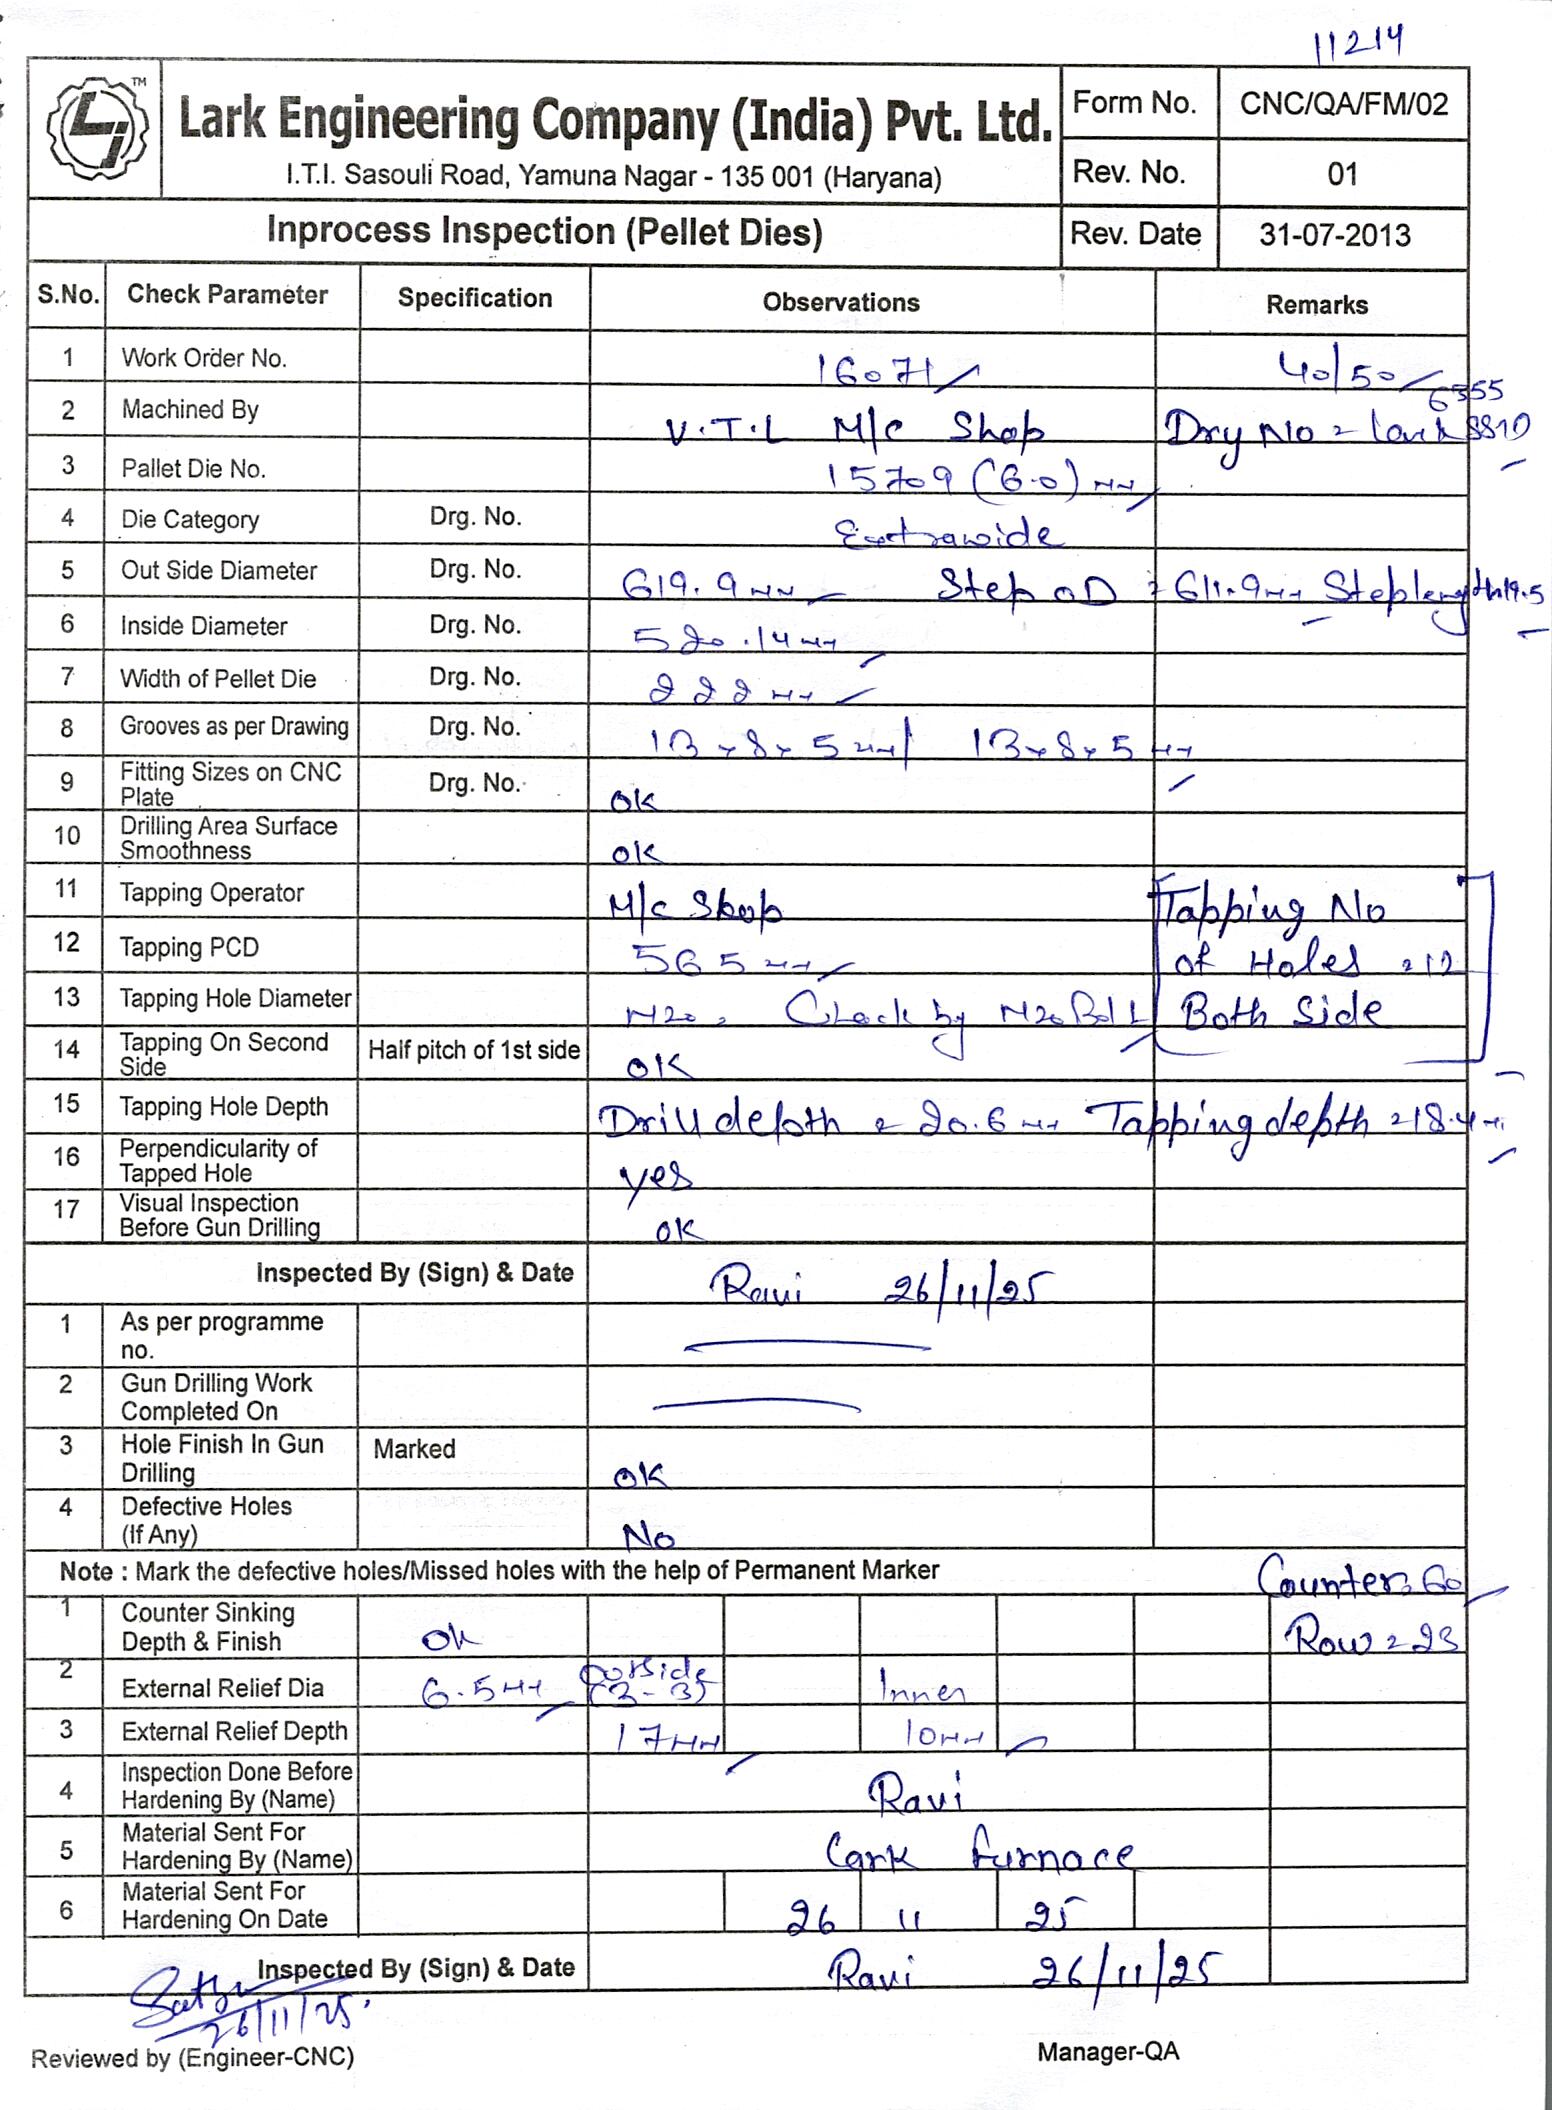 11214
TM
Lark Engineering Company (India) Pvt. Ltd.
I.T.I. Sasouli Road, Yamuna Nagar - 135 001 (Haryana)
Form No. CNC/QA/FM/02
Rev. No. 01
Inprocess Inspection (Pellet Dies) Rev. Date 31-07-2013
S.No. Check Parameter Specification Observations Remarks
1 Work Order No. 16071 40/50
6355
2 Machined By V.T.L M/c Shop Dry No = Lark
3 Pallet Die No. 15709 (6.0) mm
4 Die Category Drg. No. Extrawide
5 Out Side Diameter Drg. No. 619.9 mm Step OD = 611.9 mm Step length 19.5
6 Inside Diameter Drg. No. 520.14 mm
7 Width of Pellet Die Drg. No. 222 mm
8 Grooves as per Drawing Drg. No. 13x8x5 mm | 13x8x5 mm
9 Fitting Sizes on CNC Plate Drg. No. OK
10 Drilling Area Surface Smoothness OK
11 Tapping Operator M/c Shop Tapping No
12 Tapping PCD 565 mm of Holes = 12
13 Tapping Hole Diameter M20, Check by M20 Bolt Both Side
14 Tapping On Second Side Half pitch of 1st side OK
15 Tapping Hole Depth Drill depth = 20.6 mm Tapping depth = 18.4 mm
16 Perpendicularity of Tapped Hole yes
17 Visual Inspection Before Gun Drilling OK
Inspected By (Sign) & Date Ravi 26/11/25
1 As per programme no.
2 Gun Drilling Work Completed On
3 Hole Finish In Gun Drilling Marked OK
4 Defective Holes (If Any) No
Note : Mark the defective holes/Missed holes with the help of Permanent Marker Counter = 60
1 Counter Sinking Depth & Finish OK Row = 23
2 External Relief Dia 6.5 mm Outside (3-3) Inner
3 External Relief Depth 17 mm 10 mm
4 Inspection Done Before Hardening By (Name) Ravi
5 Material Sent For Hardening By (Name) Lark furnace
6 Material Sent For Hardening On Date 26 11 25
Inspected By (Sign) & Date Ravi 26/11/25
26/11/25
Reviewed by (Engineer-CNC) Manager-QA